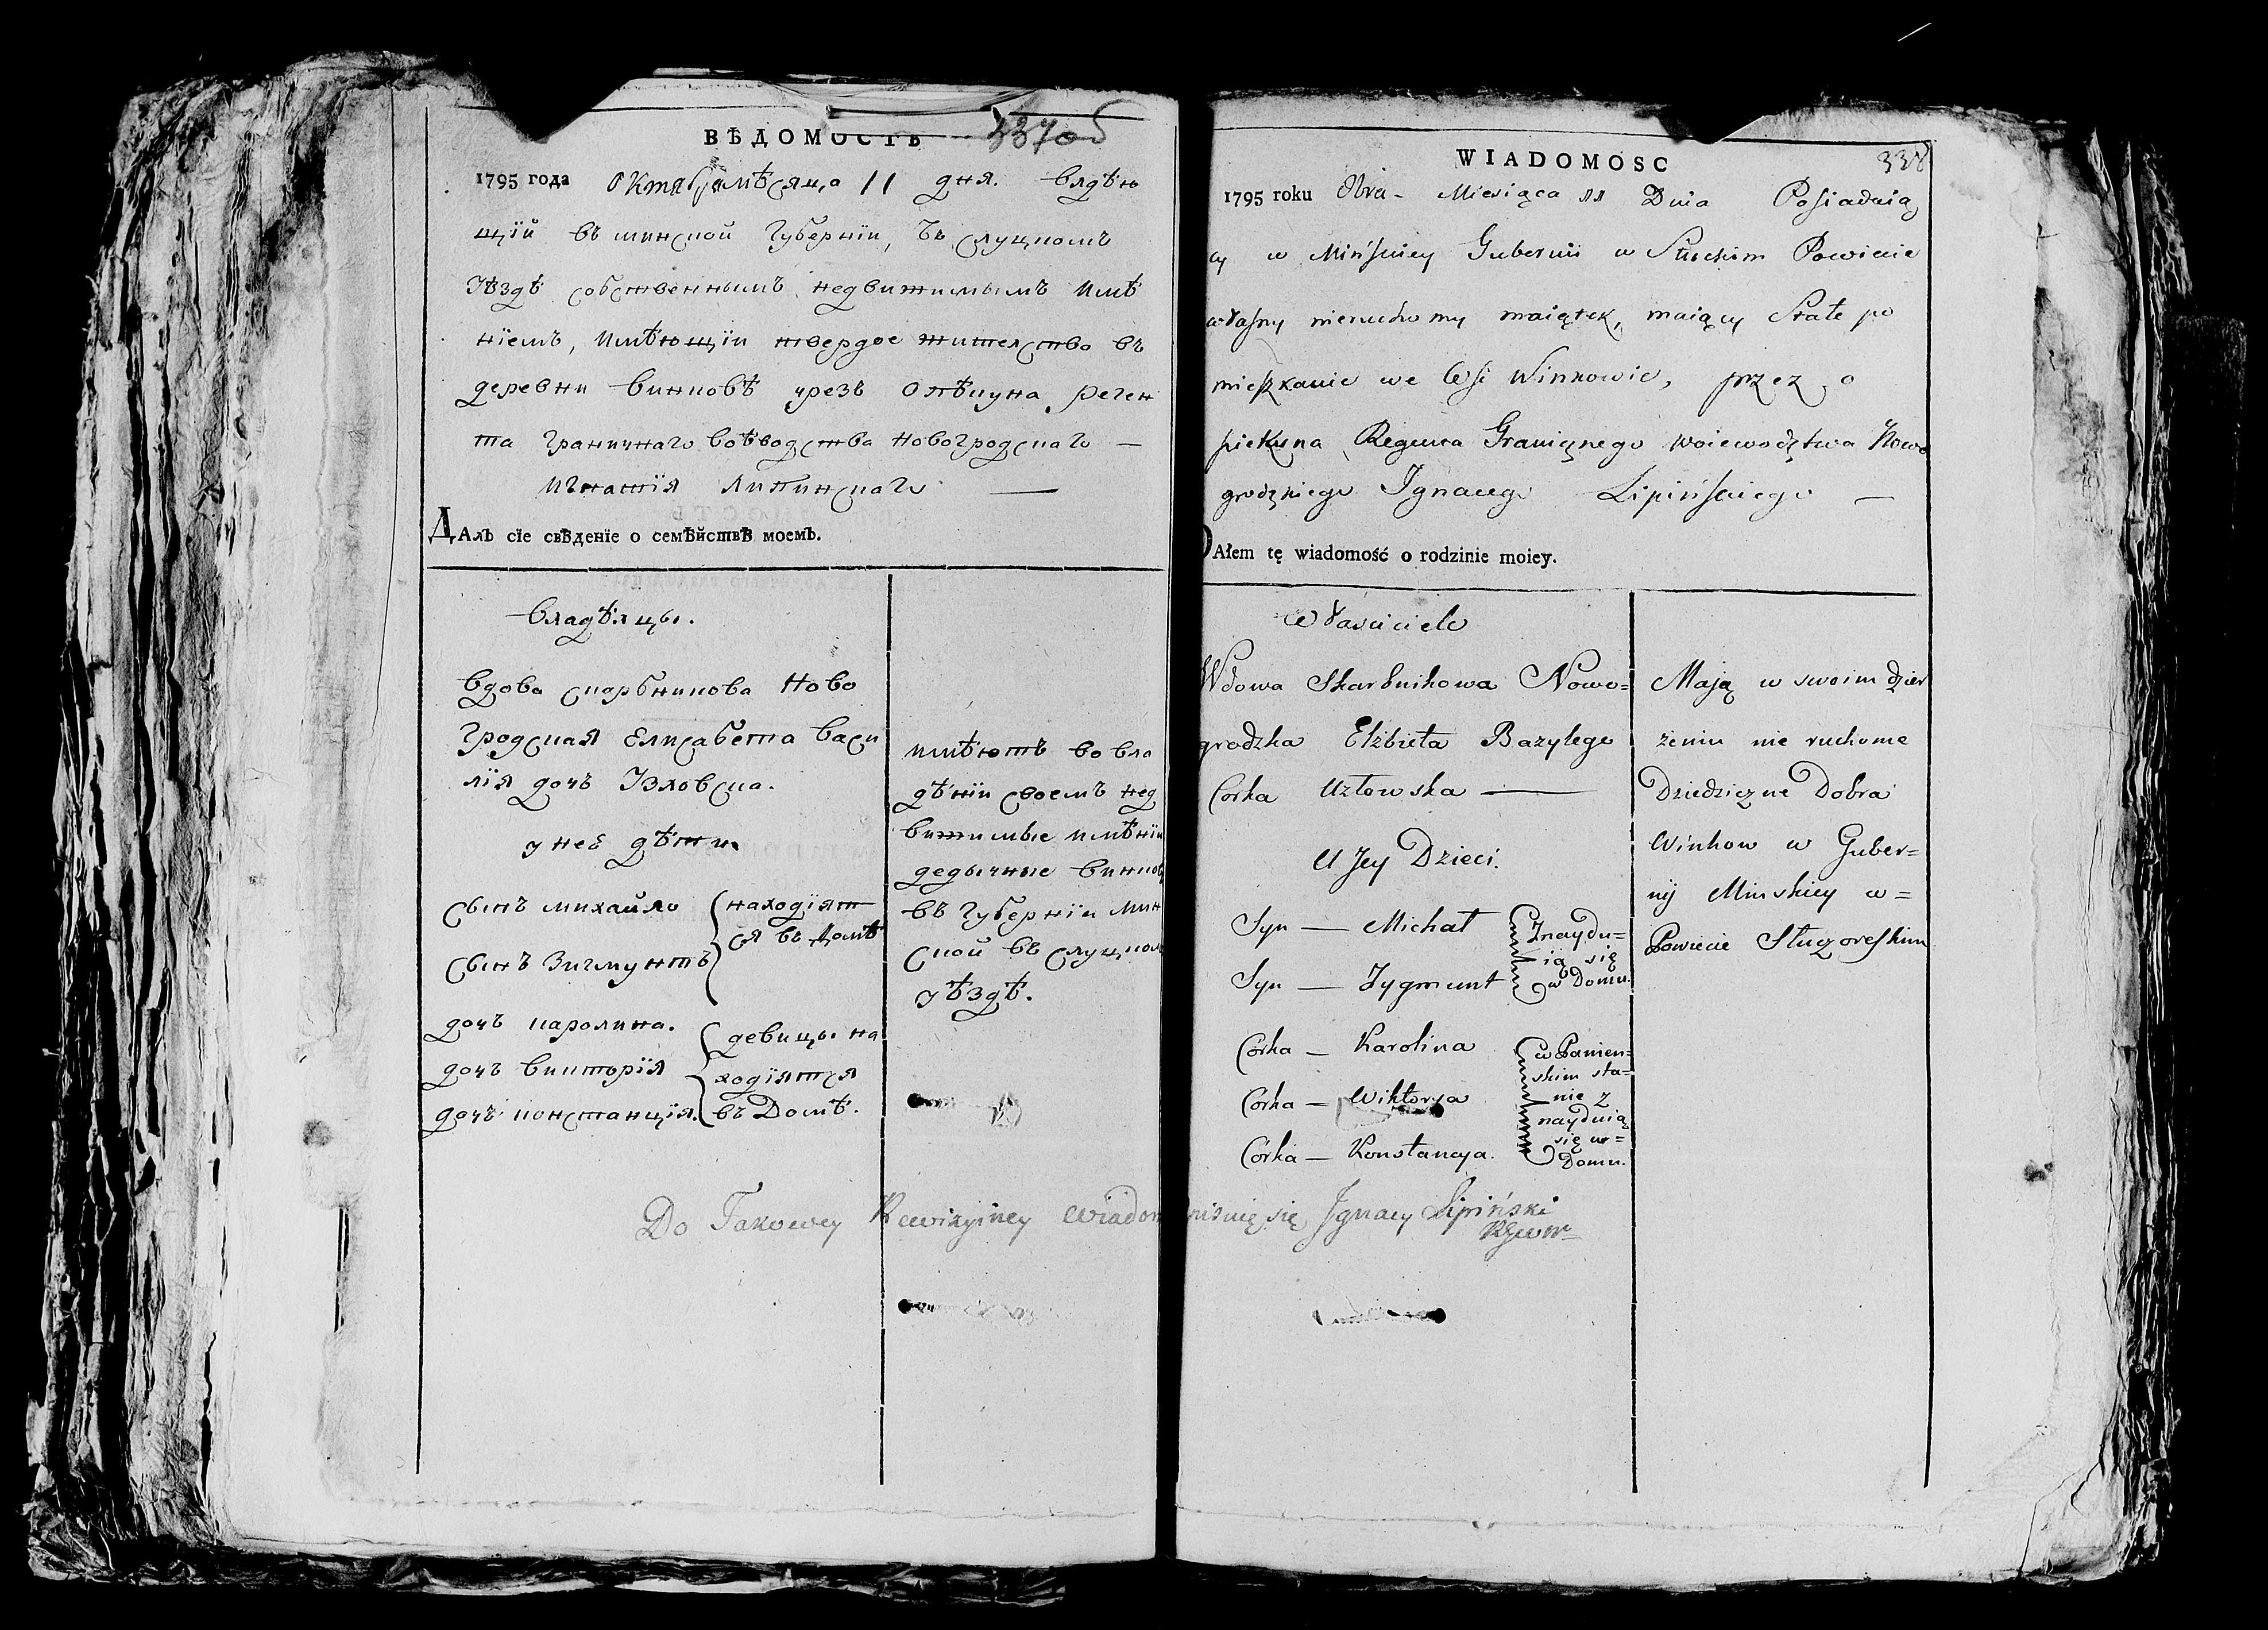 ВѢДОМОСТЬ 337об
1795 года Октября мѣсяца 11 дня. Владѣю
щїй въ минской Губернїи, въ слуцкомъ
уѣздѣ собственнымъ недвижимымъ имѣ
нїемъ, имѣющїи твердое жителство въ
деревни Винковѣ чрезъ опѣкуна реген
та граничнаго воѣводства новогродскаго —
игнатїя липинскаго —
ДАлъ сїе свѣденїе о семѣйствѣ моемъ.
владѣлцы.
вдова скарбникова Ново
гродская Елисабета васи
лїя дочь Узловска.
у неѣ дѣти
сынъ михайло
сынъ Зигмунтъ
находїят
ся въ домѣ
дочъ каролина.
дочъ викторїя
дочъ констанцїя.
девицы на
ходїятся
въ Домѣ.
имѣютъ во вла
дѣнїи своемъ нед
вижимые имѣнїи
дедычные винков
въ Губернїи мин
ской въ слуцком
уѣздѣ.
WIADOMOSC 338
1795 roku 8bra - Miesiąca 11 Dnia Posiadaią
cy w Mińskiey Gubernii w Słuckim Powiecie
własny nieruchomy maiątek, maiący Stałe po
mieszkanie we Wsi Winkowie, przez o
piekuna Regenta Granicznego Woiewodztwa Nowo
grodzkiego Ignacego Lipińskiego —
DAłem tę wiadomość o rodzinie moiey.
Własciciele
Wdowa Skarbnikowa Nowo=
grodzka Elżbieta Bazylego
Corka Uzłowska —
U Jey Dzieci.
Syn — Michał
Syn — Zygmunt
Znaydu=
ią się
w Domu.
Corka — Karolina
Corka — Wiktorya
Córka — Konstancya.
w Panien=
skim sta=
nie z
nayduią
się w=
Domu.
Mają w swoim dzier
żeniu nie ruchome
Dziedziczne Dobra
Winkow w Guber=
nij Minskiey w=
Powiecie
Do Takowey Rewizyiney Wiadom pisuię się Ignacy Lipiński